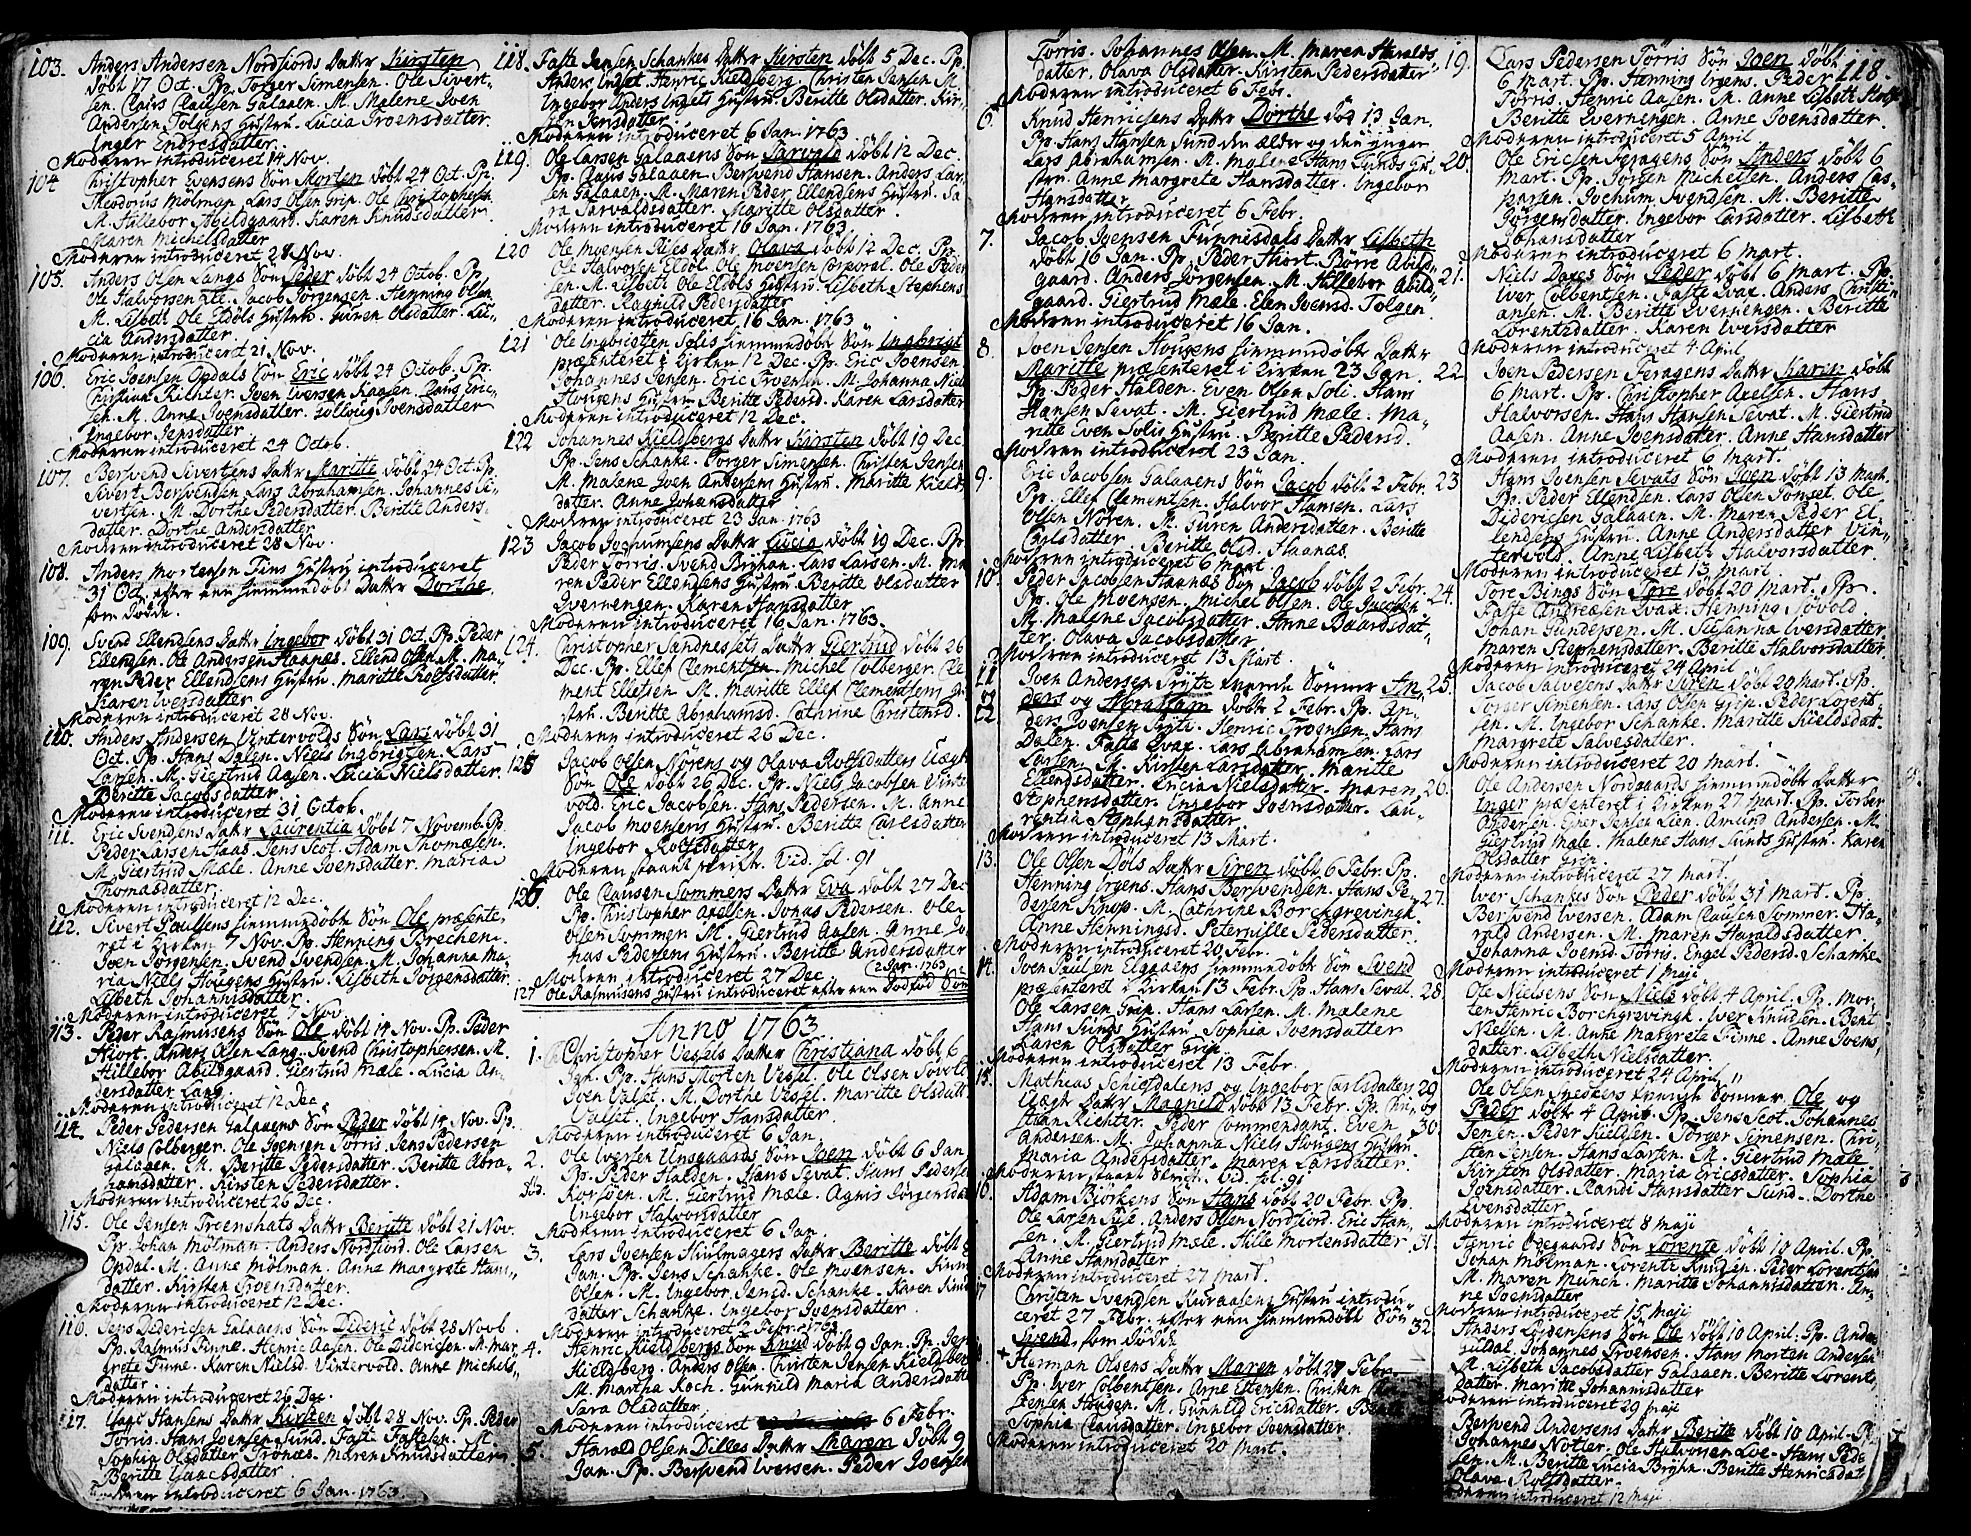 103. Anders Andersen Nordfiords Datter Kirsten
døbt 17 Oct. Pp. Torger Simensen. Ole Sivert-
sen. Claus Clausen Galaaen. M. Malene Joen
Andersen Tolgens Hustru. Lucia Troensdatter.
Inger Endresdatter.
Moderen introduceret 14 Nov.
104 Christopher Evensens Søn Morten døbt 24 Oct. Pp.
Theodorus Mølman. Lars Olsen Grip. Ole Christophersen
M. Hillebor Abildgaard. Karen Knudsdatter.
Maren Michelsdatter
Moderen introduceret 28 Nov.
105. Anders Olsen Langs Søn Peder døbt 24 Octob. Pp.
Ole Halvorsen. Jacob Jørgensen. Henning Olsen
M. Lisbeth Ole Eldols Hustru. Guren Olsdatter. Lu-
cia Andersdatter.
Moderen introduceret 21 Nov.
106. Eric Joensen Opdals Søn Eric døbt 24 Octob. Pp.
Christian Richter. Joen Iversen Kaasen. Claus Eric-
sen. M. Anne Joensdatter. Solloug Joensdatter
Ingebor Jensdatter
Moderen introduceret 24 Octob.
107. Bersvend Sivertens Datter Maritte døbt 24 Oct. Pp.
Sivert Bersvendsen. Lars Abrahamsen. Johannes Si-
vertsen. M. Dorthe Pedersdatter. Beritte Anders-
datter. Dorthe Andersdatter
Moderen introduceret 28 Nov.
108. Anders Mortensen Fins Hustru introduceret
31 Oct. efter een hiemmedøbt Datter Dorthe,
som døde.
109. Svend Ellendsens Datter Ingebor døbt 31 Oct. Pp. Peder
Ellendsen. Ole Andersen Haanæs. Ellend Olsen. M. Ma-
ren Peder Ellendsens Hustru. Maritte Rolfsdatter.
Karen Iversdatter
Moderen introduceret 28 Nov.
110. Anders Andersen Vintervolds Søn Lars døbt 31
Oct. Pp. Hans Dalen. Niels Ingbrigtsen. Lars
Larsen. M. Giertrud Aasen. Lucia Nielsdatter.
Beritte Jacobsdatter.
Moderen introduceret 31 Octob.
111. Eric Svendsens Datter Laurentia døbt 7 Novemb. Pp.
Peder Larsen Haas. Jens Scot. Adam Thomæsen.
M. Giertrud Mæle. Anne Joensdatter. Maria
Thomasdatter.
Moderen introduceret 12 Dec.
112. Sivert Paulsens hiemmedøbte Søn Ole præsente-
ret i Kirken 7 Nov. Pp. Henning Brechen.
Joen Jørgensen. Svend Svendsen. M. Johanna Ma-
ria Niels Hougens Hustru. Lisbeth Jørgensdatter.
Lisbeth Johannisdatter.
Moderen introduceret 7 Nov.
113. Peder Rasmusens Søn Ole døbt 14 Nov. Pp. Peder
Hiort. Anders Olsen Lang. Svend Christophersen. M.
Hillebor Abildgaard. Giertrud Mæle. Lucia An-
dersdatter Lang
Moderen introduceret 12 Dec.
114. Peder Pedersen Galaaens Søn Peder døbt 14 Nov. Pp.
Niels Colberger. Ole Joensen Tørris. Jens Pedersen
Galaaen. M. Beritte Pedersdatter. Beritte Abra-
hamsdatter. Kirsten Pedersdatter.
Moderen introduceret 26 Dec.
115. Ole Jensen Troenshats Datter Beritte døbt 21 Nov.
Pp. Johan Mølman. Anders Nordfiord. Ole Larsen
Opdal. M. Anne Mølman. Anna Margrete Hans-
datter. Kirsten Troensdatter.
Moderen introduceret 12 Dec.
116. Jens Didericsen Galaaens Søn Dideric døbt 28 Novb.
Pp. Rasmus Finne. Henric Aasen. Ole Didericsen. M. Mar-
grete Finne. Karen Nielsd. Vintervold. Anne Michels-
datter
Moderen introduceret 26 Dec.
117. Hansens Datter Kirsten døbt 28 Nov. Pp. Peder
Tørris. Hans Joensen Sund. Faste Fastesen. M.
Sophia Olsdatter Trønæs. Maren Knudsdatter
Beritte Isaacsdatter
Moderen introduceret 6 Jan. 1763.
118. Faste Jensen Schankes Datter Kirsten døbt 5 Dec. Pp.
Anders Inget. Henric Kieldberg. Christen Jensen. M.
Ingebor Anders Ingets Hustru. Beritte Olsdatter. Kir-
sten Jensdatter.
Moderen introduceret 6 Jan. 1763.
119. Ole Larsen Galaaens Søn Tarvald døbt 12 Dec.
Pp. Claus Galaaen. Bersvend Hansen. Anders Lar-
sen Galaaen. M. Maren Peder Ellendsens Hustru. Sa-
ra Tarvaldsdatter. Maritte Olsdatter.
Moderen introduceret 16 Jan. 1763.
120 Ole Moensen Riises Datter Olava døbt 12 Dec. Pp.
Ole Halvorsen Eldol. Ole Moensen Corporal. Ole Peder-
sen. M. Lisbeth Ole Eldols Hustru. Lisbeth Stephens-
datter. Ragnild Pedersdatter
Moderen introduceret 16 Jan. 1763
121 Ole Ingbrigtsen Solis hiemmedøbte Søn Ingbrigt
præsenteret i Kirken 12 Dec. Pp. Eric Joensen.
Johannes Jensen. Eric Troensen. M. Johanna Niels
Hougens Hustru. Beritte Pedersd. Karen Larsdatter
Moderen introduceret 12 Dec.
122 Johannes Kieldbergs Datter Kirsten døbt 19 Dec.
Pp. Jens Schanke. Torger Simensen. Christen Jensen
M. Malene Joen Andersens Hustru. Maritte Kields-
datter. Anne Johansdatter
Moderen introduceret 23 Jan. 1763
123 Jacob Jochumsens Datter Lucia døbt 19 Dec. Pp.
Peder Tørris. Svend Bryhan. Lars Larsen. M. Ma-
ren Peder Ellendsens Hustru. Beritte Olsdatter
Qvernengen. Karen Hansdatter
Moderen introduceret 16 Jan. 1763.
124. Christopher Sandnessets Datter Giertrud døbt 26
Dec. Pp. Ellef Clementsen. Michel Colberger. Cle-
ment Ellefsen. M. Maritte Ellef Clementsens Hu-
stru. Beritte Abrahamsd. Cathrine Christensd.
Moderen introduceret 26 Dec.
125 Jacob Olsen Nørens og Olava Rolfsdatters Uægte
Søn Ole døbt 26 Dec. Pp. Niels Jacobsen Vinter-
vold. Eric Jacobsen. Hans Pedersen. M. Anne
Jacob Moensens Hustru. Beritte Carlsdatter
Ingebor Rolfsdatter
Moderen staaet skrift. Vid. fol. 91
126 Ole Clausen Sommers Datter Eva døbt 27 Dec
Pp. Christopher Axelsen. Jonas Pedersen. Ole
Olsen Sommer. M. Giertrud Aasen. Anne Jo-
nas Pedersens Hustru. Beritte Andersdatter
Moderen introduceret 27 Dec.
2 Jan. 1763
127 Ole Rasmusens Hustru introduceret efter een dødfød Søn
Anno 1763
1. Christopher Vessels Datter Christiana døbt 6
Jan. Pp. Hans Morten Vessel. Ole Olsen Søvold
Joen Valset. M. Dorthe Vessel. Maritte Olsdatter
Valset. Ingebor Hansdatter.
Moderen introduceret 6 Jan.
2. Ole Iversen Unsgaards Søn Joen døbt 6 Jan.
Pp. Peder Halden. Hans Sevat. Hans Pedersen
Død. Korsøen. M. Giertrud Mæle. Agnis Jørgensdat
Ingebor Halvorsdatter
Moderen introduceret 6 Jan.
3. Lars Joensen Hiulmagers Datter Beritte døbt 8
Jan. Pp. Jens Schanke. Ole Moensen.
Olsen. M. Ingebor Jensd. Schanke. Karen Knud
datter Schanke. Ingebor Joensdatter.
Moderen introduceret 2 Febr. 1763
4. Henric Kieldbergs Søn Knud døbt 9 Jan. Pp. Jens
Kieldberg. Anders Olsen. Christen Jensen Kieldberg
M. Martha Koch. Gunnild Maria Andersdatter
Sara Olsdatter.
Moderen introduceret 6 Febr.
5. Harald Olsen Dilles Datter Maren døbt 9
Jan. Pp. Bersvend Iversen. Peder Joensen
Tørris. Johannes Olsen. M. Maren Haralds
datter. Olava Olsdatter. Kirsten Pedersdatter
Moderen introduceret 6 Febr.
6. Knud Henricsens Datter Dorthe døb 13 Jan.
Pp. Hans Hansen Sund den ælder og den yngre
Lars Abrahamsen. M. Malene Hans Sunds Hu-
stru. Anne Margrete Hansdatter. Ingebor
Hansdatter
Moderen introduceret 6 Febr.
7. Jacob Joensen Finnesdals Datter Lisbeth
døbt 16 Jan. Pp. Peder Hiort. Børre Abild-
gaard. Anders Jørgensen. M. Hillebor Abild-
gaard. Giertrud Mæle. Elen Joensd. Tolgen.
Moderen introduceret 16 Jan.
8. Joen Jensen Hougens hiemmedøbte Datter
Maritte præsenteret i Kirken 23 Jan.
Pp. Peder Halden. Even Olsen Soli. Hans
Hansen Sevat. M. Giertrud Mæle. Ma-
ritte Even Solis Hustru. Beritte Pedersd.
Moderen introduceret 23 Jan.
9. Eric Jacobsen Galaaens Søn Jacob døbt 2 Febr.
Pp. Ellef Clementsen. Halvor Hansen. Lars
Olsen Noren. M. Guren Andersdatter. Beritte
Carlsdatter. Beritte Olsd. Haanæs.
Moderen introduceret 6 Mart.
10. Peder Jacobsen Haanæs Søn Jacob døbt 2 Febr.
Pp. Ole Moensen. Michel Olsen. Ole Jacobsen
M. Malene Jacobsdatter. Anne Baardsdat-
ter. Olava Jacobsdatter
Moderen introduceret 13 Mart.
11 Joen Andersen Tryte tvende Sønner An-
12. ders og Abraham døbt 2 Febr. Pp. An-
ders Joensen Tryte. Henric Troensen. Hans
Dalen. Faste Qvax. Lars Abrahamsen. Lars
Larsen. M. Kirsten Larsdatter. Maritte
Ellendsdatter. Lucia Nielsdatter. Maren
Stephensdatter. Ingebor Joensdatter. Lau-
rentia Stephansdatter
Moderen introduceret 13 Mart.
13. Ole Olsen Døls Datter Siren døbt 6 Febr. Pp.
Henning Irgens. Hans Bersvendsen. Hans Pe-
dersen Knop. M. Cathrine Borchgrevingk.
Anne Henningsd. Peternille Pedersdatter.
Moderen introduceret 20 Febr.
14. Joen Paulsen Elgaaens hiemmedøbte Søn Svend
præsenteret i Kirken 13 Febr. Pp. Hans Sevat.
Ole Larsen Grip. Hans Larsen. M. Malene
Hans Sunds Hustru. Sophia Joensdatter
Karen Olsdatter Grip
Moderen introduceret 13 Febr.
15. Mathias Schiefdalens og Ingebor Carlsdatters
Uægte Datter Magnild døbt 13 Febr. Pp. Chri-
stian Richter. Peder Commendant. Even
Andersen. M. Johanna Niels Hougens Hustru
Maria Andersdatter. Maren Larsdatter.
Moderen staaet skrift. Vid. fol. 91
16. Adam Biørkens Søn Hans døbt 20 Febr. Pp.
Ole Larsen Siise. Anders Olsen Nordfiord. Eric Han-
sen. M. Giertrud Mæle. Hille Mortensdatter
Anne Hansdatter
Moderen introduceret 27 Mart.
17 Christen Svendsen Kuraasens Hustru introdu-
ceret 27 Febr. efter een hiemmedøbt Søn
Svend, som døde
+ Herman Olsens Datter Maren døbt 27 Febr.
Pp. Iver Colbentsen. Arne Estensen. Christen Chri-
stensen Hougen. M. Gunnild Ericsdatter. Beritte
Sophia Clausdatter. Ingebor Joensdatter.
Moderen introduceret 20 Mart.
118.
19. Lars Pedersen Tørris Søn Joen døbt
6 Mart. Pp. Henning Irgens. Peder
Tørris. Henric Aasen. M. Anne Lisbeth
Beritte Qvernengen. Anne Joensdatter.
Moderen introduceret 5 April
20. Ole Ericsen Feragens Søn Anders døbt 6
Mart. Pp. Jørgen Michelsen. Anders Cas-
parsen. Jochum Svendsen. M. Beritte
Jørgensdatter. Ingebor Larsdatter. Lisbeth
Johansdatter
Moderen introduceret 6 Mart.
21. Niels Daxes Søn Peder døbt 6 Mart. Pp.
Iver Colbentsen. Faste Qvax. Anders Christi-
ansen. M. Beritte Qvernengen. Beritte
Lorentsdatter. Karen Iversdatter
Moderen introduceret 4 April
22. Joen Pedersen Feragens Datter Karen døbt
6 Mart. Pp. Christopher Axelsen. Hans
Halvorsen. Hans Hansen Sevat. M. Giertrud
Aasen. Anne Joensdatter. Anne Hansdatter
Moderen introduceret 6 Mart.
23 Hans Joensen Sevats Søn Joen døbt 13 Mart.
Pp. Peder Ellendsen. Lars Olsen Tønset. Ole
Didericsen Galaaen. M. Maren Peder El-
lendsens Hustru. Anne Andersdatter Vin-
tervold. Anne Lisbeth Halvorsdatter.
Moderen introduceret 13 Mart.
24. Tore Bings Søn Tore døbt 20 Mart. Pp.
Faste Andreæsen Qvax. Henning Søvold.
Johan Gundersen. M. Susanna Iversdatter.
Maren Stephensdatter. Beritte Halvorsdatter.
Moderen introduceret 24 April
25. Jacob Salvesens Datter Siren døbt 20 Mart. Pp.
Torger Simensen. Lars Olsen Grip. Peder Lorent-
sen. M. Ingebor Schanke. Maritte Kieldsdat.
Margrete Salvesdatter.
Moderen introduceret 20 Mart.
26. Ole Andersen Nordgaards hiemmedøbte Datter
Inger præsenteret i Kirken 27 Mart. Pp. Torber
Andersen. Einer Jensen Lien. Amund Andersen. M.
Giertrud Mæle. Malene Hans Sunds Hustru. Karen
Olsdatter Grip.
Moderen introduceret 27 Mart.
27. Iver Schankes Søn Peder døbt 31 Mart. Pp.
Bersvend Iversen. Adam Clausen Sommer. Ha-
rald Andersen. M. Maren Haraldsdatter
Johanna Joensd. Tørris. Engel Pedersd. Schanke
Moderen introduceret 1 Maji
28 Ole Nielsens Søn Niels døbt 4 April. Pp. Mor-
ten Henric Borchgrevingk. Iver Knudsen. Bent
Nielsen. M. Anne Margrete Finne. Anne Joens-
datter. Lisbeth Nielsdatter.
Moderen introduceret 24 April
29 Ole Olsen Sneskers tvende Sønner Ole og
og 30 Peder døbt 4 April. Pp. Jens Scot. Johannes
Jensen. Peder Kieldsen. Torger Simensen. Chri-
sten Jensen. Hans Larsen. M. Giertrud Mæle
Kirsten Olsdatter. Maria Ericsdatter. Sophia
Joensdatter. Randi Hansdatter Sund. Dorthe
Evensdatter.
Moderen introduceret 8 Maji
31. Henric Ødegaards Søn Lorents døbt 10 April. Pp.
Johan Mølman. Lorents Knudsen. Peder Lorentsen
M. Maren Münch. Maritte Johannisdatter. An-
ne Joensdatter
Moderen introduceret 15 Maji
32. Anders Pedersens Søn Ole døbt 10 April. Pp. Anders
Guldal. Johannes Troensen. Hans Morten Andersen
M. Lisbeth Jacobsdatter Galaaen. Beritte Lorents
datter. Maritte Johannisdatter
Moderen introduceret 29 Maji
Bersvend Andersens Datter Beritte døbt 10 April. Pp.
Johannes Nøtler. Ole Halvorsen Lve. Hans Peder
sen. M. Beritte Lucia Bryhn. Beritte Henricsdat
Olava Rolfsdatter.
Moderen introduceret 12 Maji